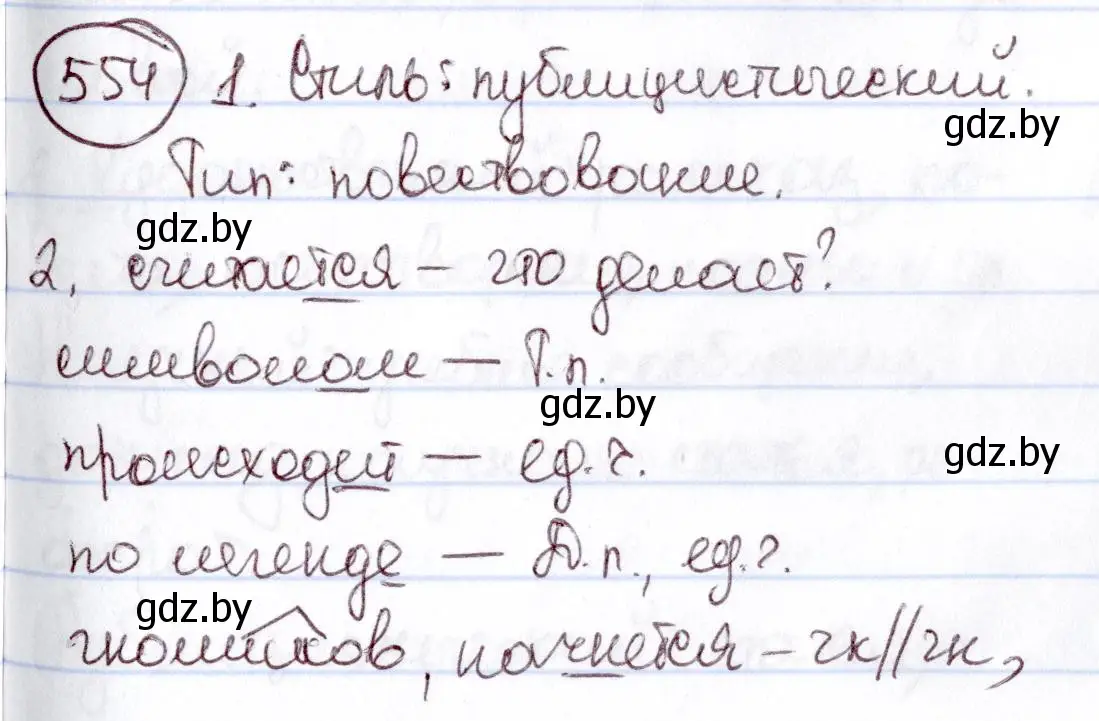 554 1. Стиль: публицистический.
gdz.by
Тип: повествование.
gdz.by
2, считается – что делает?
символом – Т.п.
gdz.by
происходит – ед.ч.
gdz.by
по легенде – Д.п., ед.ч.
gdz.by
гномиков, начнется – чк//чн,